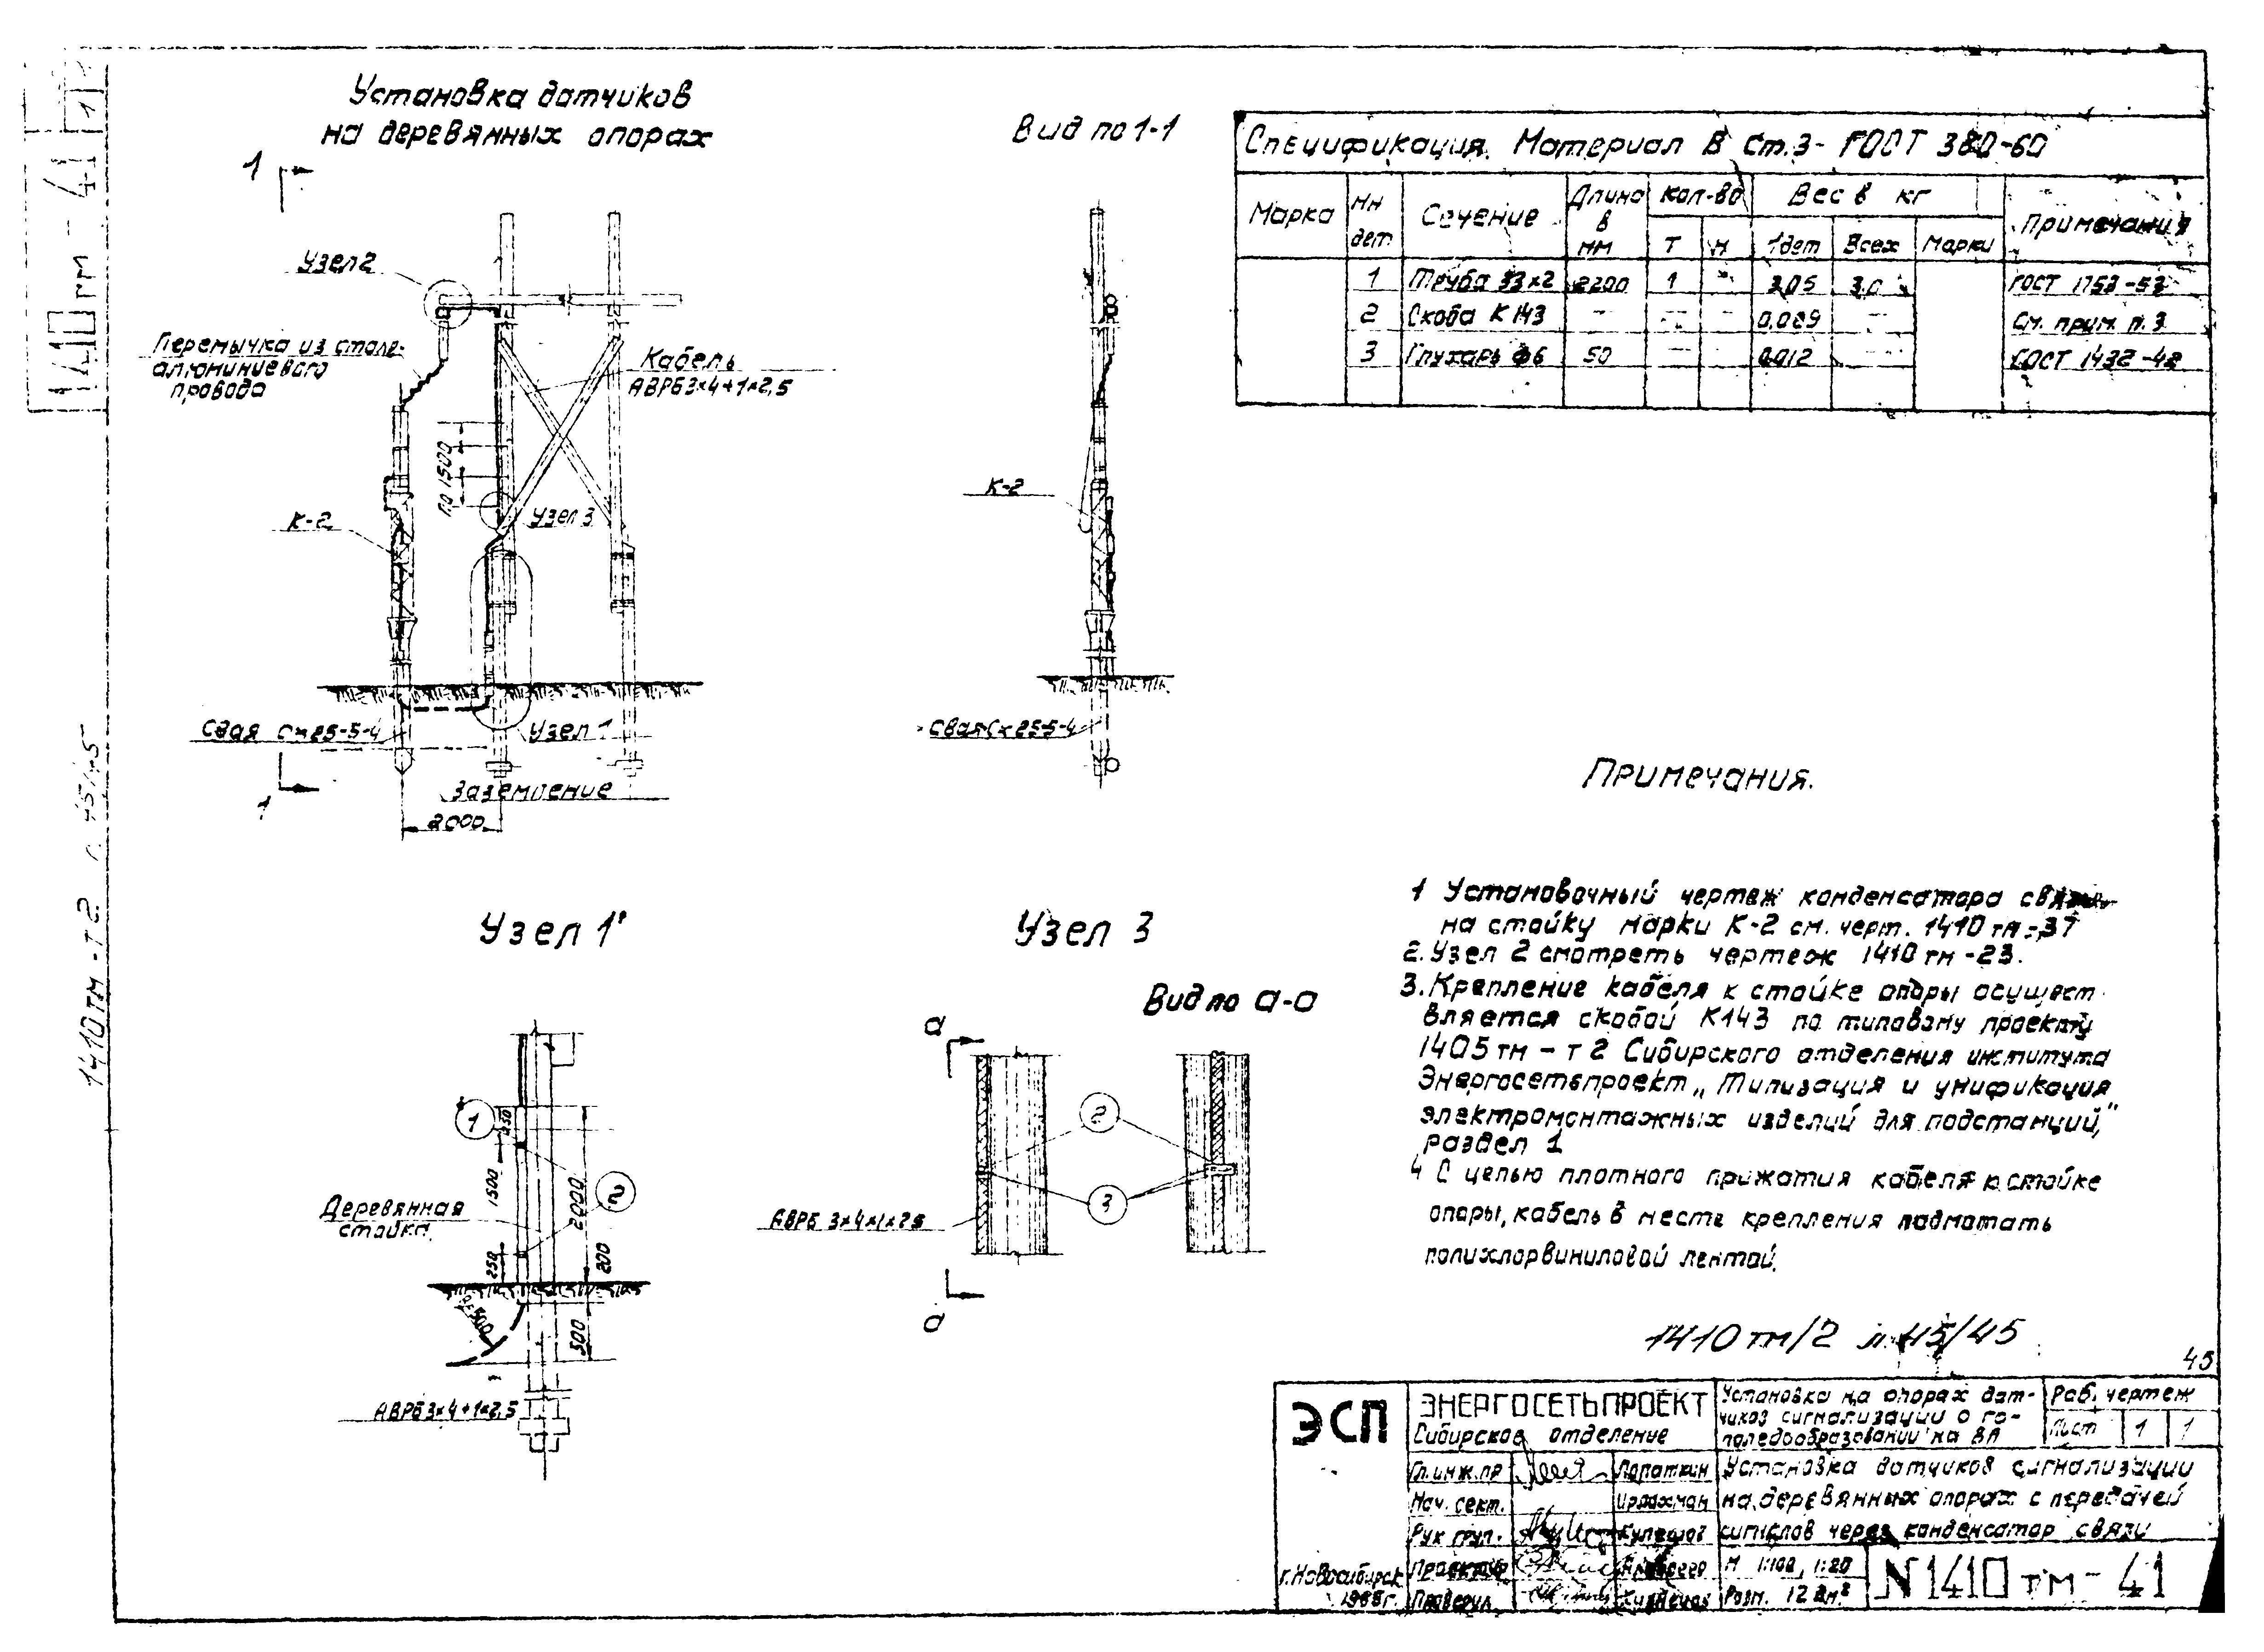 1410тм - 41
1
1410тм-т2 л. 45/45
Установка датчиков
на деревянных опорах
1
Узел 2
Перемычка из стале-
алюминиевого
провода
Кабель
АВРБ 3×4+1×2,5
по 1500
К-2
Узел 3
Свая Сн25-5-4
Узел 1
Заземление
1
2000
Вид по 1-1
К-2
Свая Сн25-5-4
Спецификация. Материал В Ст.3- ГОСТ 380-60
Марка
НН дет.
Сечение
Длина в мм
Кол-во
Т
Н
Вес в кг
1дет
Всех
Марки
Примечания
1 Труба 33×2 2200 1 - 3,05 3,0 ГОСТ 1753-53
2 Скоба К143 — — — 0,089 — См. прим. п. 3
3 Глухарь ф6 50 — — 0,012 — ГОСТ 1432-42
Узел 1
1
2
250
1500
Деревянная
стойка
250
2000
200
500
АВРБ 3×4+1×2,5
Узел 3
Вид по а-а
а
2
3
АВРБ 3×4×1×2,5
а
Примечания.
1 Установочный чертеж конденсатора связи
на стойку марки К-2 см. черт. 1410тм-37
2. Узел 2 смотреть чертеж 1410тм-23.
3. Крепление кабеля к стойке опоры осущест-
вляется скобой К143 по типовому проекту
1405тм-т2 Сибирского отделения института
Энергосетьпроект „Типизация и унификация
электромонтажных изделий для подстанций,"
раздел 1
4 С целью плотного прижатия кабеля к стойке
опоры, кабель в месте крепления подмотать
полихлорвиниловой лентой.
1410тм/2 л. 45/45
45
ЭСП
ЭНЕРГОСЕТЬПРОЕКТ
Сибирское отделение
Установка на опорах дат-
чиков сигнализации о го-
лоледообразовании на ВЛ
Раб. чертеж
Лист 1 1
Гл. инж. пр. Лопаткин
Нач. сект.
Рук. груп. Кулешов
Проектир
Проверил
Установка датчиков сигнализации
на деревянных опорах с передачей
сигналов через конденсатор связи
г. Новосибирск
1968г.
М 1:100, 1:20
Разм. 12 дм²
N1410тм-41